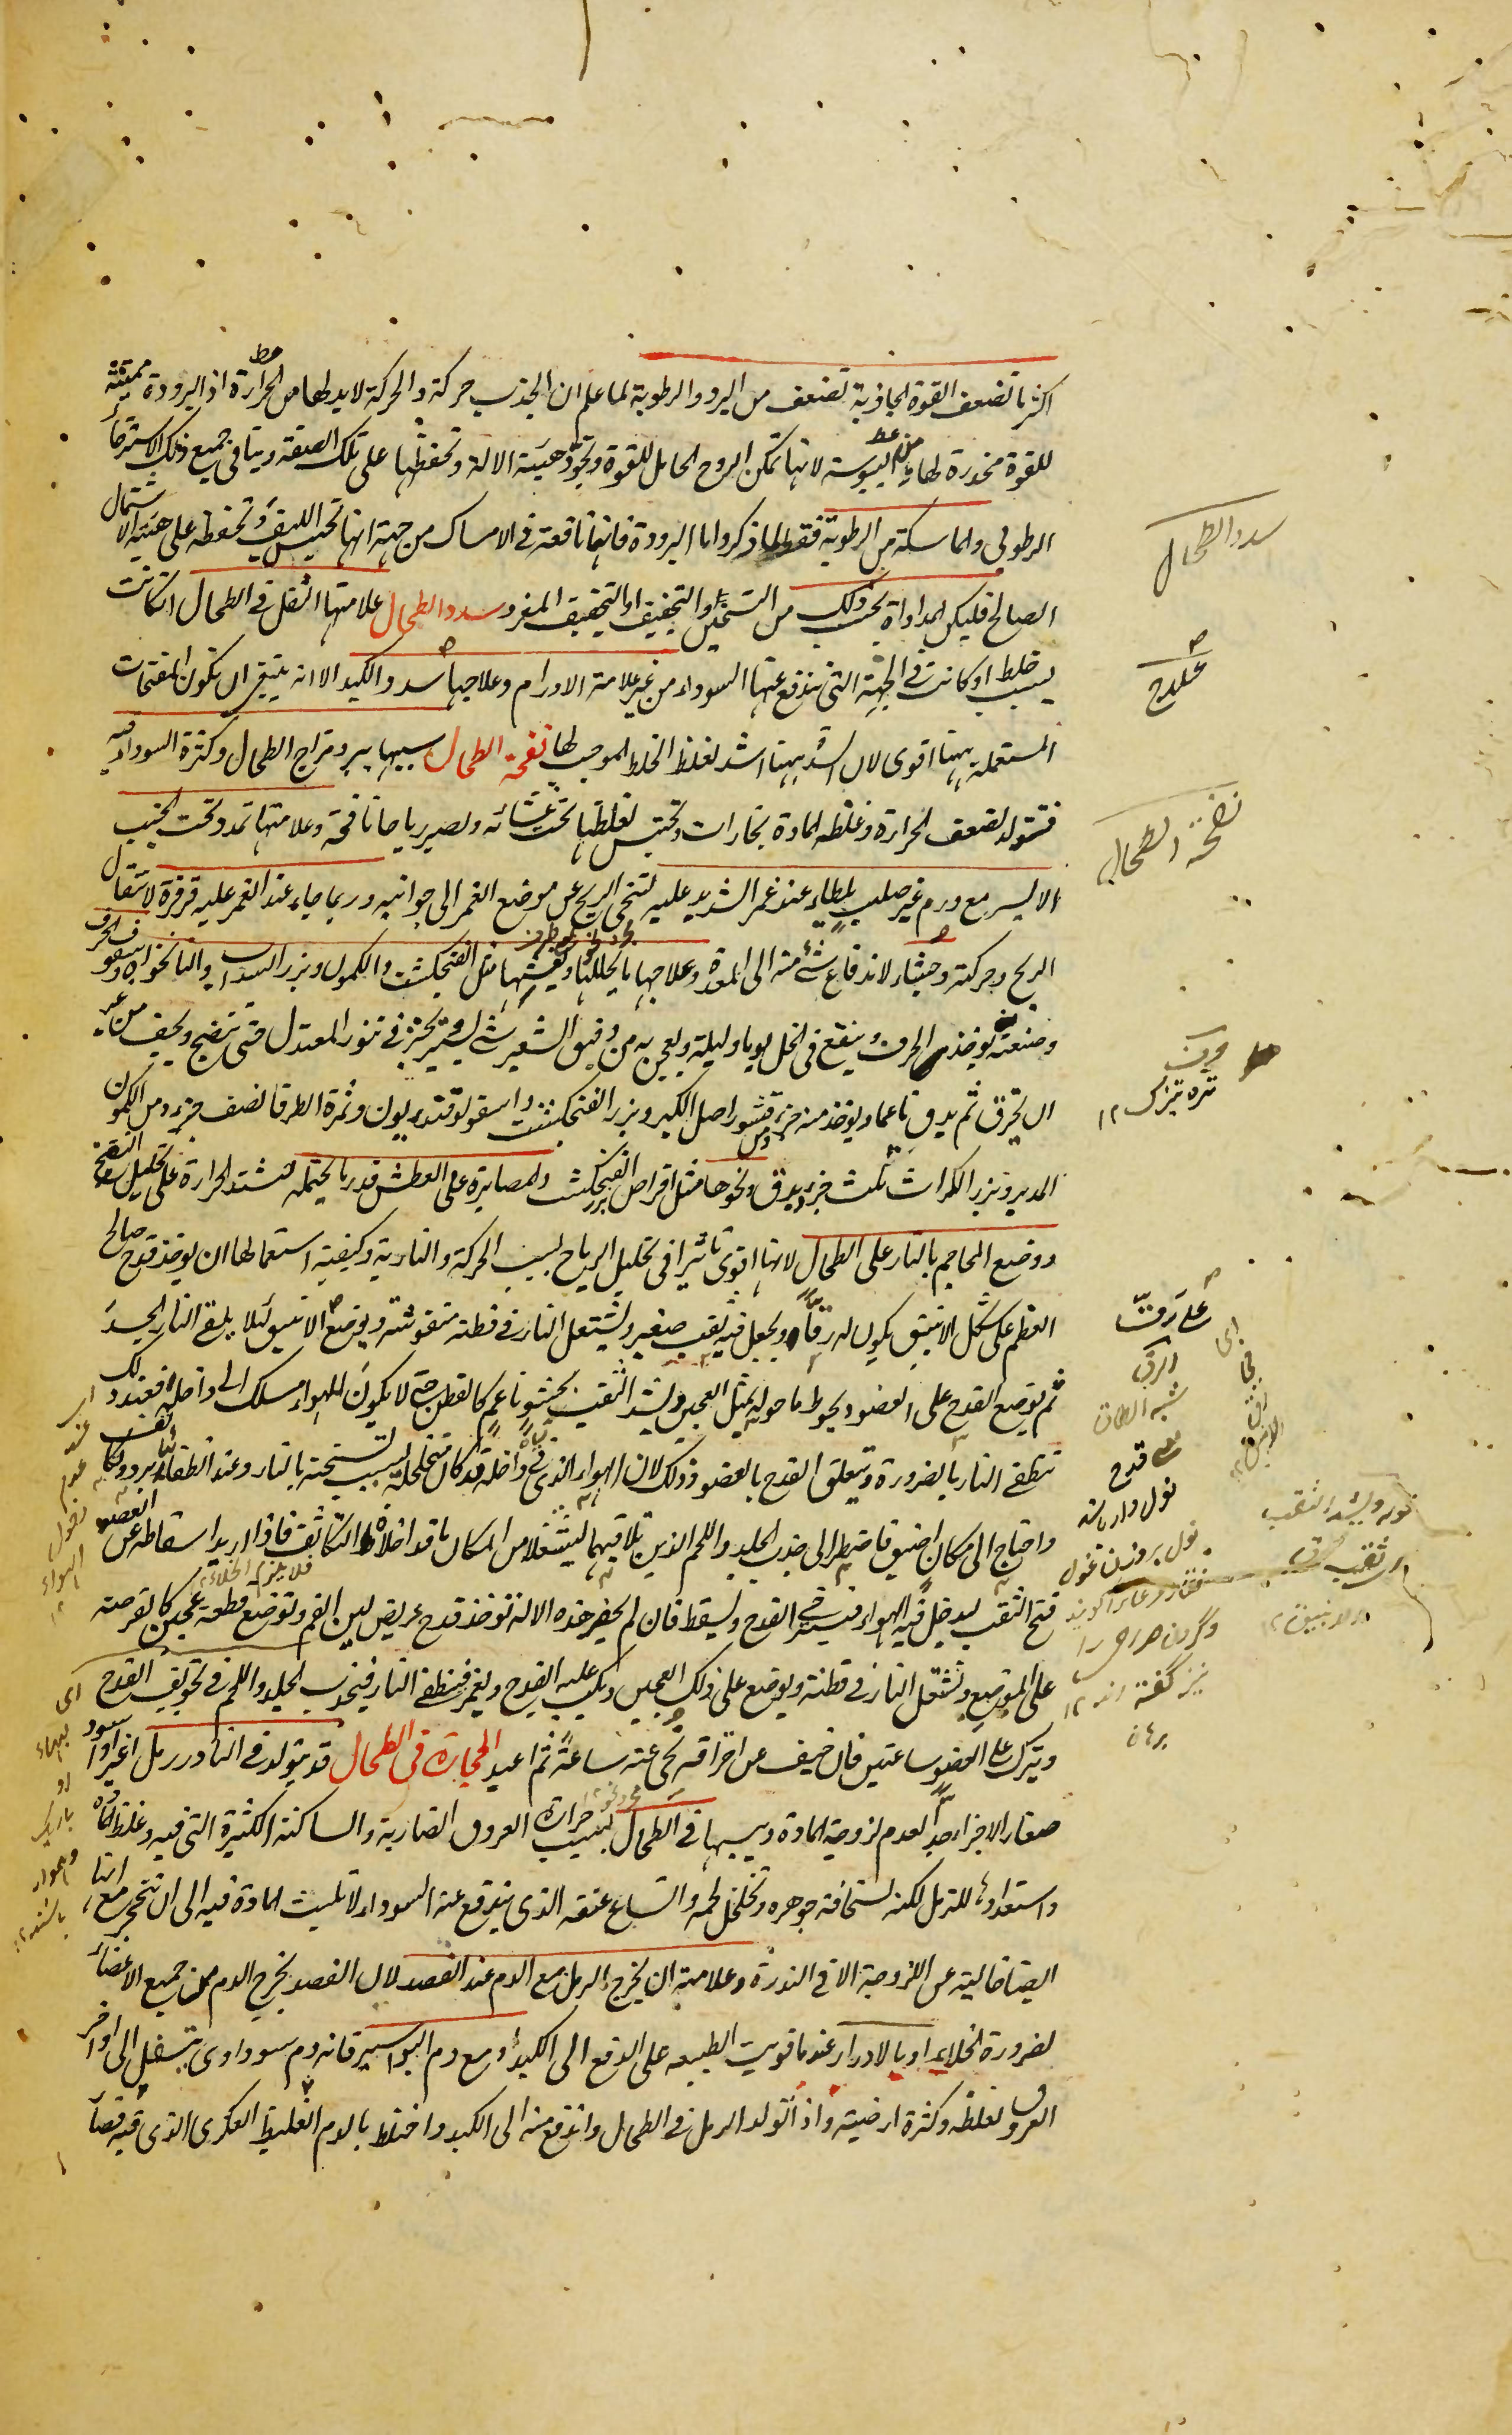 اكثر ما تضعف القوة الجاذبة تضعف من البرد والرطوبة لما علم ان الجذب حركة والحركة لابد لها من الحرارة اذ البرودة مميتة
للقوة مخدرة لها من اليبوسة لانها تمكن الروح الحامل للقوة وتجود هيئة الالة وتحفظها على تلك الصفة وينافى جميع ذلك الاسترخاء
الرطوبى والماسكة من الرطوبة فقط لما ذكر واما البرودة فانها نافعة فى الامساك من جهة انها تحبس الليف وتحفظه على هيئة الاشتمال
الصالح فليكن المداواة بحسب ذلك من التسخين والتجفيف او التجفيف المفرد سدد الطحال علامتها الثقل فى الطحال ان كانت
بسبب خلط او كانت فى الجهة التى يندفع عنها السوداء من غير علامة الاورام وعلاجها سدد الكبد الا انه ينبغى ان تكون المفتحات
المستعملة ههنا اقوى لان السدد ههنا اشد لغلظ الخلط الموجب لها نفخة الطحال سببها برد مزاج الطحال وكثرة السوداء فيه
فتتولد لضعف الحرارة وغلظ المادة بخارات وتحتبس لغلظها تحت غشائه وتصير رياحا نافخة وعلامتها تمدد تحت الجنب
الايسر مع ورم غير صلب يطاء عند غمز الشديد عليه لتنحى الريح عن موضع الغمز الى جوانبه وربما جاء عند الغمز عليه قرقرة لانتقال
الريح وحركته وجشاء لاندفاع شئ منه الى المعدة وعلاجها ما يحللها ويفشها مثل الفنجنكشت والكمون وبزر السداب والنانخواه وسفوف الحرف
وصنعته يوخذ الحرف وينقع فى الخل يوما وليلة ويعجن به من دقيق الشعير شئ يسير يخبز فى تنور المعتدل حتى ينضج ويجف من غير
ان يحترق ثم يدق ناعما ويوخذ منه جزء ومن قشور اصل الكبر وبزر الفنجنكشت واسقولوقندريون وثمرة الطرفا نصف جزء ومن الكمون
المدبر وبزر الكراث ثلث جزء ويدق ونحوها مثل اقراص بزر الفنجنكشت والمصابرة على العطش قدر ما يحتمله لتشتد الحرارة على تحليل النفخ
ووضع المحاجم بالنار على الطحال لانها اقوى تاثيرا فى تحليل الرياح بسبب الحركة والنارية وكيفية استعمالها ان يوخذ قدح صالح
العظم على شكل الانبيق يكون له رقا ويجعل فيه ثقب صغير ويشتعل النار فى قطنة منفوشة ويوضع الانبيق لئلا يلقى النار الجسد
ثم يوضع القدح على العضو ويحوط ما حوله بمثل العجين ويشد الثقب بحشو ناعم كالقطن حتى لا يكون للهواء مسلك الى داخله فعند ذلك
تنطفى النار بالضرورة ويتعلق القدح بالعضو وذلك لان الهواء الذى فى داخله قد كان تخلخل بسبب تسخينه بالنار وعند انطفائها برد وتكاثف
واحتاج الى مكان اضيق فاضطر الى جذب الجلد واللحم الذين تلاقيهما ليشغلا من المكان ما قد اخلاه التكاثف فاذا اريد اسقاطه عن العضو
فتح الثقب ليدخل فيه الهواء فيسترخى القدح ويسقط فان لم يحضر هذه الالة توخذ قدح عريض لين الفم وتوضع قطعة عجين كالقرصة
على الموضع وتشتعل النار فى قطنة ويوضع على ذلك العجين ويكب عليه القدح ويغمز فينطفى النار فينجذب الجلد واللحم فى تجويف القدح
ويترك على العضو ساعتين فان خيف عن احراقه نحى عنه ساعة ثم اعيد الحجارة فى الطحال قد يتولد فى النادر رمل اغبر او اسود
صغار الاجزاء جدا لعدم لزوجة المادة ويبسها فى الطحال بسبب حرارة العروق الضاربة والساكنة الكثيرة التى فيه وغلظ المادة
واستعدادها للترمل لكنه لسخافة جوهره وتخلخل لحمه واتساع عنقه الذى يندفع عنه السوداء لا تلبث المادة فيه الى ان تتحجر مع انها
ايضا خالية عن اللزوجة الا فى الندرة وعلامته ان يخرج الرمل مع الدم عند الفصد لان الفصد يخرج الدم من جميع الاعضاء
لضرورة الخلاء او بالادرار عند ما قويت الطبيعه على الدفع الى الكبد او مع دم البواسير فانه دم سوداوى يتسفل الى اواخر
العروق لغلظه وكثرة ارضيته واذا تولد الرمل فى الطحال واندفع منه الى الكبد واختلط بالدم الغليظ العكرى الذى فيه فصار
سدد الطحال
علاج
نفخة الطحال
حرف
تره تيزك ١٢
الرق
شبه الطاق
قوله ويشد الثقب
نيز گفته اند ١٢
برهان